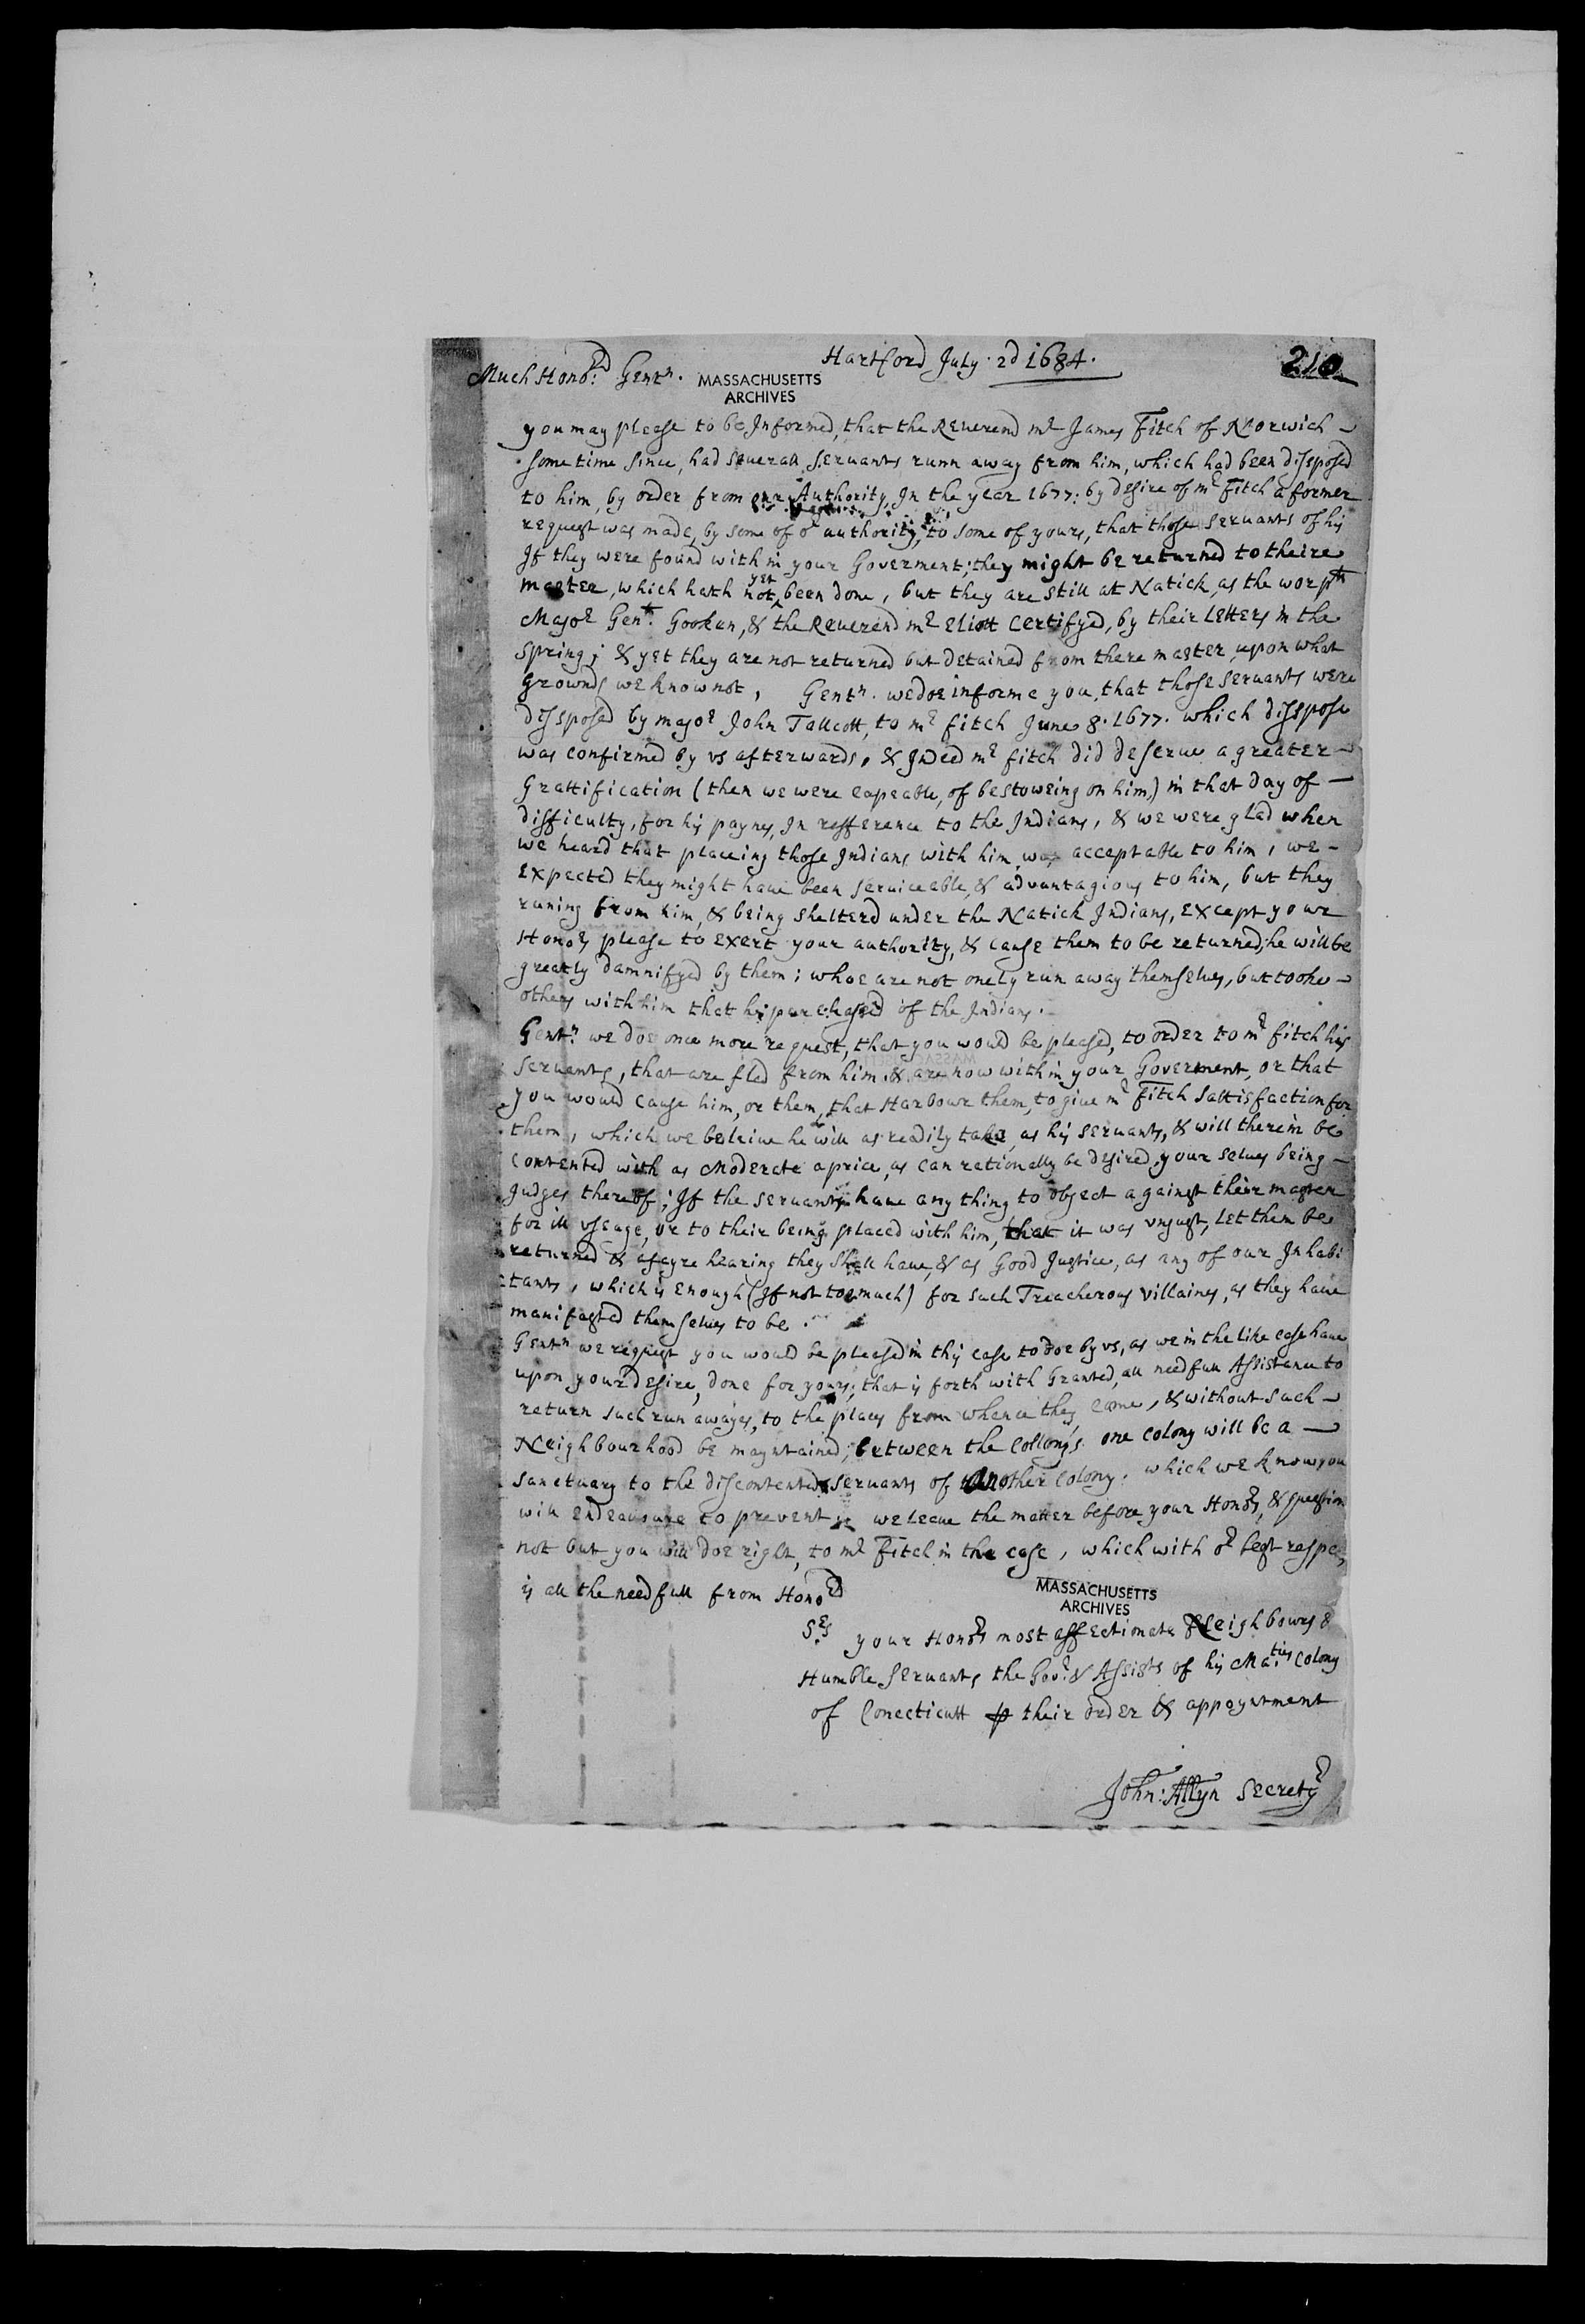 Hartford July. 2d 1684.
210
Much Honod: Gentn.
MASSACHUSETTS
ARCHIVES
you may please to be Informed, that the Reuerend mr James Fitch of Norwich -
some time since, had seuerall seruants runn away from him, which had been dissposed
to him, by order from our Authority, In the year 1677: by desire of mr Fitch a former
request was made, by some of or authority, to some of yours, that those seruants of his
If they were found with in your Goverment; they might be returned to theire
master, which hath not yet been done, but they are still at Natick, as the worpll
Major Genll. Gookin, & the Reuerend mr Eliott Certifyed, by their Letters in the
spring; & yet they are not returned but detained from there master upon what
grownds we know not, Gentn. we doe informe you, that those seruants were
dissposed by major John Tallcott, to mr fitch June 8. 1677. which disspose
was confirmed by vs afterwards, & Indeed mr fitch did deserue a greater -
Grattification (then we were capeable, of bestoweing on him,) in that day of -
difficulty, for his paynes, In refference to the Indians, & we were glad when
we heard that placeing those Indians with him was acceptable to him, we -
Expected they might haue been seruiceable, & advantagious to him, but they
runing from him, & being shelterd under the Natick Indians, Except your
Honors please to exert your authority, & cause them to be returned, he will be
greatly damnifyed by them; whoe are not onely run away themselues, but tooke -
others with him that he purchased of the Indians.
Gentn. we doe once more request, that you would be pleased, to order to mr fitch his
seruants, that are fled from him & are now with in your Goverment, or that
you would cause him, or them, that Harbour them, to giue mr Fitch Sattisfaction for
them, which we beleiue he will as readily take, as his seruants, & will therein be
Contented with as Moderate a price, as can rationally be desired, your selues being -
Judges thereof; If the seruants haue any thing to object against their master
for ill vseage, or to their being placed with him, that it was vnjust, let them be
returned & a fayre hearing they shall haue, & as Good Justice, as any of our Inhabi
tants, which is Enough (If not too much) for such Treacherous villaines, as they haue
manifested themselues to be.
Gentn we request you would be pleased in this case to doe by vs, as we in the like case haue
upon your desire, done for yours; that is forth with Granted, all needfull Assistance to
return such run awayes, to the places from whence they came, & without such -
Neighbourhood be mayntained, between the Collonys one colony will be a -
sanctuary to the discontented seruants of another Colony. which we know you
will Endeauoure to prevent we leaue the matter before your Honors, & question
not but you will doe right, to mr Fitch in the case, which with or best respc,
is all the needfull from Honod
MASSACHUSETTS
ARCHIVES
Srs your Honors most affectionate Neighbours &
Humble Seruants the Gour. & Assists of his Maties Colony
of Conecticutt ꝑ their order & appoyntment
John: Allyn Secretry